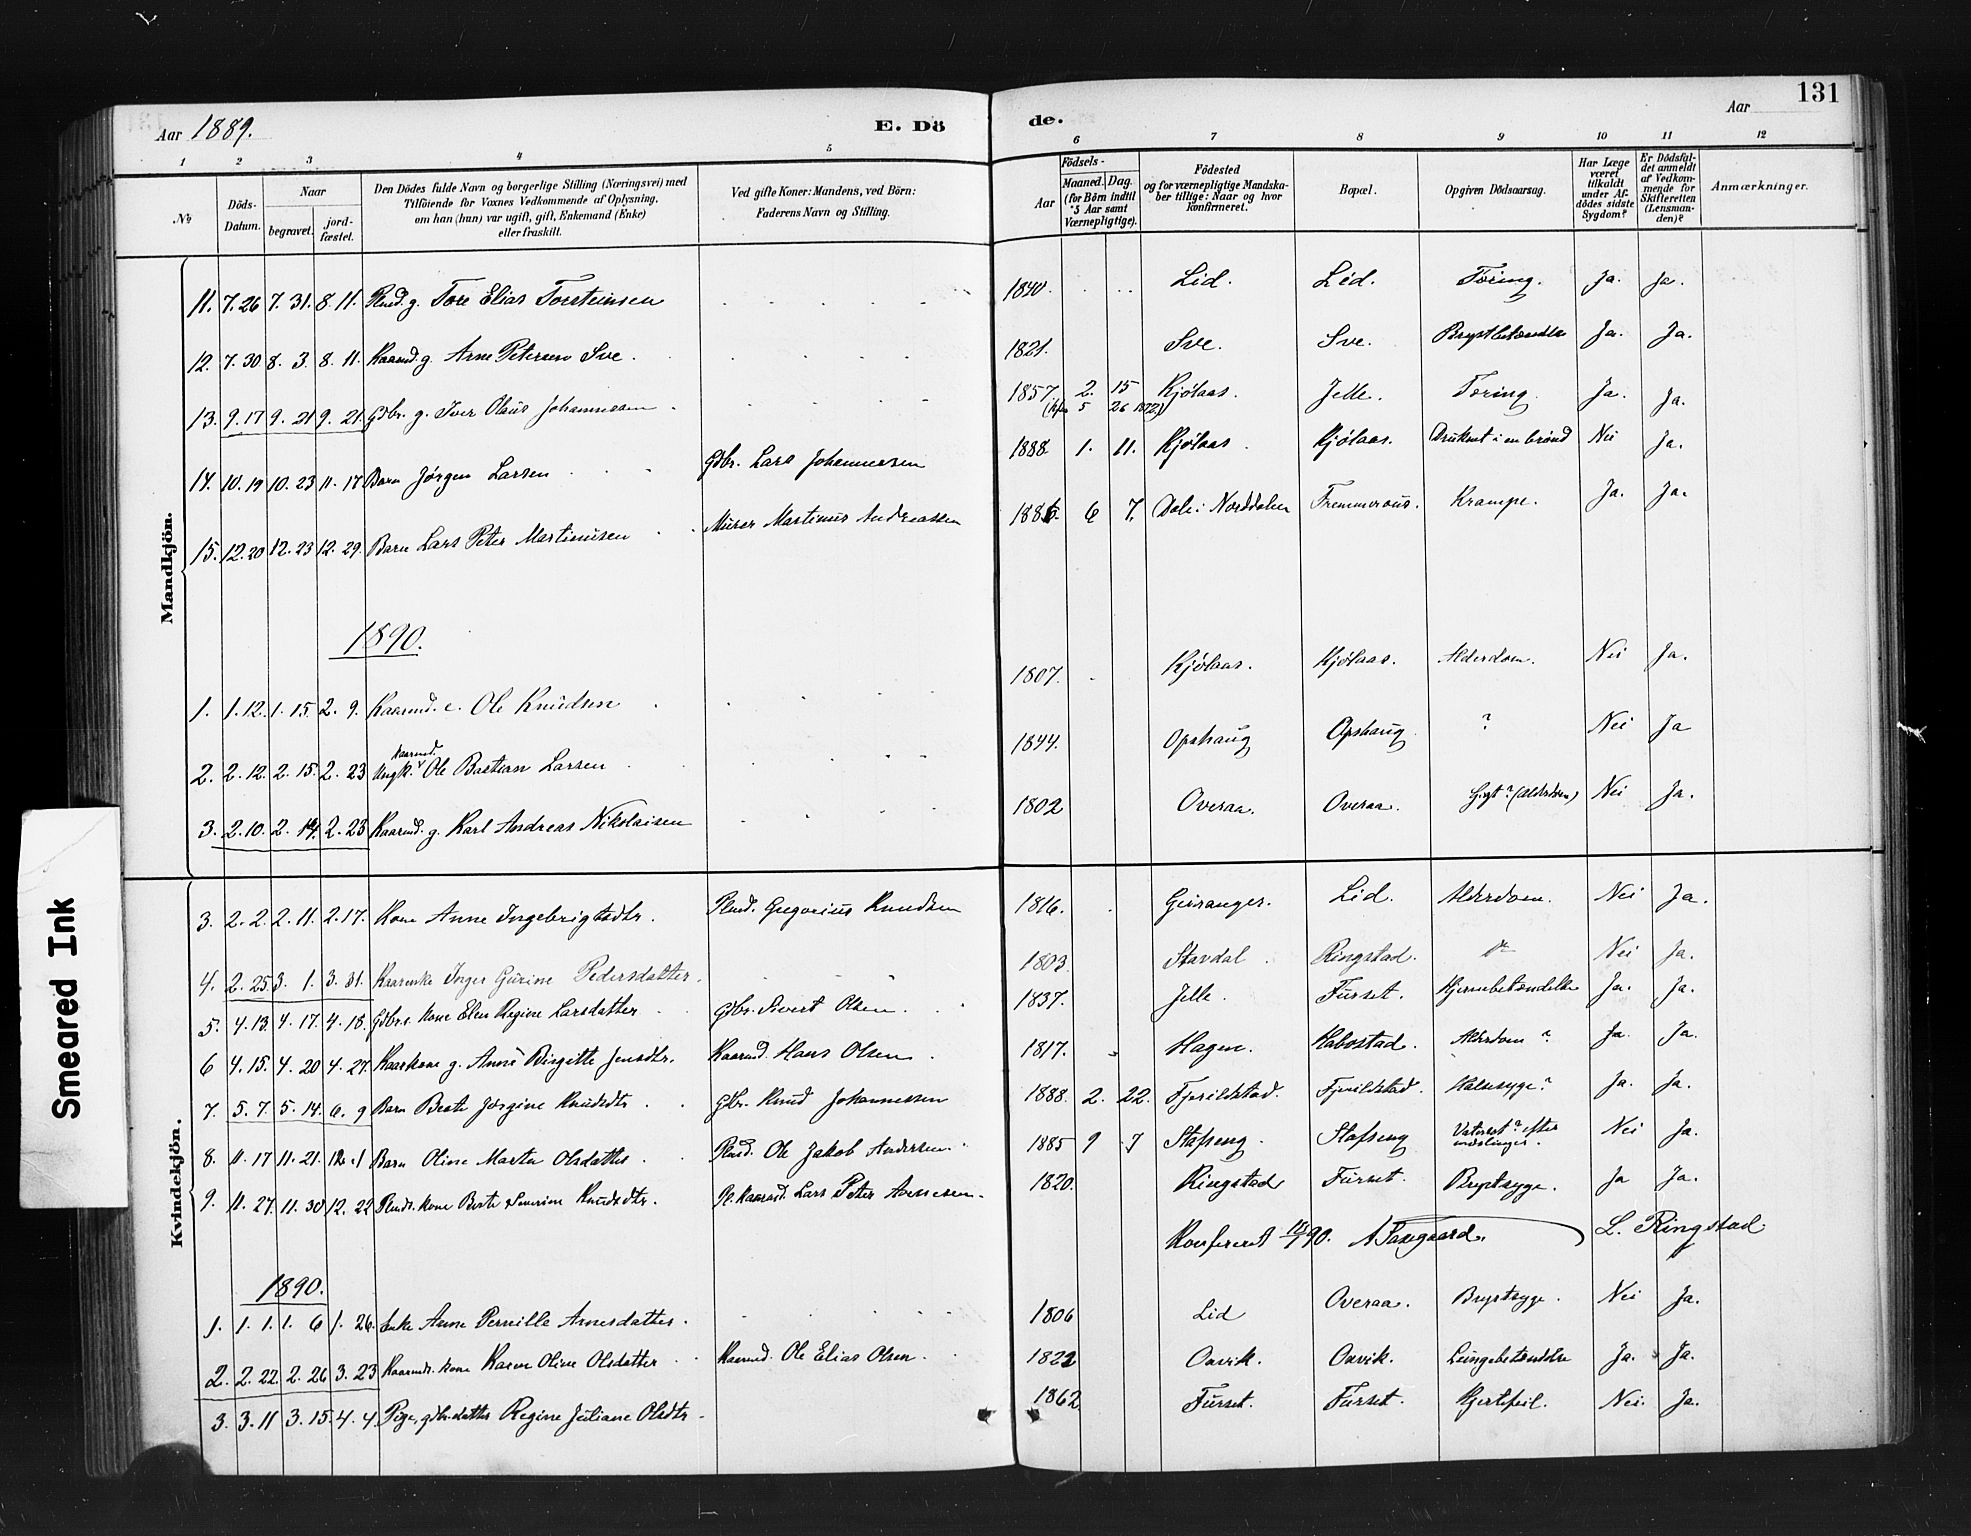 131
Aar 1889. E. Dö de. Aar
1 2 3 4 5 6 7 8 9 10 11 12
No
Döds-Datum.
Naar begravet. jord-fæstet.
Den Dödes fulde Navn og borgerlige Stilling (Næringsvei) med Tilföiende for Voxnes Vedkommende af Oplysning, om han (hun) var ugift, gift, Enkemand (Enke) eller fraskilt.
Ved gifte Koner: Mandens, ved Börn: Faderens Navn og Stilling.
Födsels- Aar Maaned. Dag. (for Börn indtil 5 Aar samt Værnepligtige).
Födested og for værnepligtige Mandskaber tillige: Naar og hvor konfirmeret.
Bopæl.
Opgiven Dödsaarsag.
Har Læge været tilkaldt under Afdödes sidste Sygdom?
Er Dödsfaldet anmeldt af Vedkommende for Skifteretten (Lensmanden)?
Anmærkninger.
Mandkjön.
11. 7. 26 7. 31. 8. 11. Plnd. g. Tore Elias Torsteinsen 1840. Lid. Lid. Tæring. Ja. Ja.
12. 7. 30 8. 3. 8. 11. Kaarmd. g. Arne Petersen Sve. 1821. Sve. Sve. Brystbetændelse Ja. Ja.
13. 9. 17 9. 21 9. 21. Gdbr. g. Iver Olaus Johannessen 1857. 2. 15 Kjölaas. Jelle. Tæring. Ja. Ja.
(kfm 5 26 1872)
14. 10. 19 10. 23 11. 17 Barn Jörgen Larsen Gdbr. Lars Johannessen 1888 1. 11. Kjölaas. Kjölaas. Druknet i en brönd Nei Ja.
15. 12. 20 12. 23 12. 29. Barn Lars Peter Martinusen Murer Martinus Andreassen 1886. 6 7. Dale i Norddalen Fremmerhaus. Krampe. Ja. Ja.
1890.
1. 1. 12. 1. 15. 2. 9. Kaarmd. e. Ole Knudsen 1807. Kjölaas. Kjölaas. Alderdom. Nei Ja.
2. 2. 12. 2. 15. 2. 23 Ungk. kaarmd. Ole Bastian Larsen 1844. Opshaug Opshaug ? Nei Ja
3. 2. 10. 2. 14. 2. 23 Kaarmd. g. Karl Andreas Nikolaisen 1802 Overaa. Overaa. Gigt? (Alderdom) Nei Ja.
Kvindekjön.
3. 2. 2. 2. 11. 2. 17. Kone Anne Ingebrigtsdtr. Plnd. Gregorius Knudsen 1816. Geiranger. Lid. Alderdom. Nei Ja.
4. 2. 25. 3. 1. 3. 31. Kaarenke Inger Gurine Pedersdatter. 1803. Stavdal Ringstad. do Nei Ja.
5. 4. 13. 4. 17. 4. 18. Gdbrs kone Elen Regine Larsdatter Gdbr. Sivert Olsen. 1837. Jelle. Furset. Hjernebetændelse Ja. Ja.
6 4. 15. 4. 20 4. 27. Kaarkone g. Anne Birgitte Jensdtr. Kaarmd. Hans Olsen 1817. Hagen. Habostad. Alderdom ? Ja. Ja.
7. 5. 7. 5. 14. 6. 9 Barn Berte Jörgine Knudsdtr Gdbr. Knud Johannessen 1888. 2. 22. Fjerildstad. Fjerildstad. Halssyge? Ja. Ja.
8. 11. 17 11. 21. 12. 1 Barn Oline Marta Olsdatter Plnd. Ole Jakob Andersen 1885 9 7 Stafseng. Stafseng Vatersot? efter meslinger. Nei Ja.
9. 11. 27. 11. 30 12. 22 Plnds. kone Berte Severine Knudsdtr. Pl. kaarmd. Lars Peter Arnesen. 1820. Ringstad Furset. Brystsyge. Ja Ja.
Konfereret 90. A Saxegaard. L. Ringstad
1890.
1. 1. 1. 1. 6 1. 26. Enke Anne Pernille Arnesdatter. 1806 Lid Overaa. Brystsyge. Nei Ja.
2. 2. 22. 2. 26 3. 23 Kaarmds. kone Karen Oline Olsdatter Kaarmd. Ole Elias Olsen. 1822 Oxvik. Oxvik. Lungebetændelse Ja. Ja.
3. 3. 11 3. 15. 4. 4. Pige, gdbr. datter Regine Juliane Olsdtr. 1862 Furset. Furset. Hjertfeil. Nei. Ja.
Smeared Ink